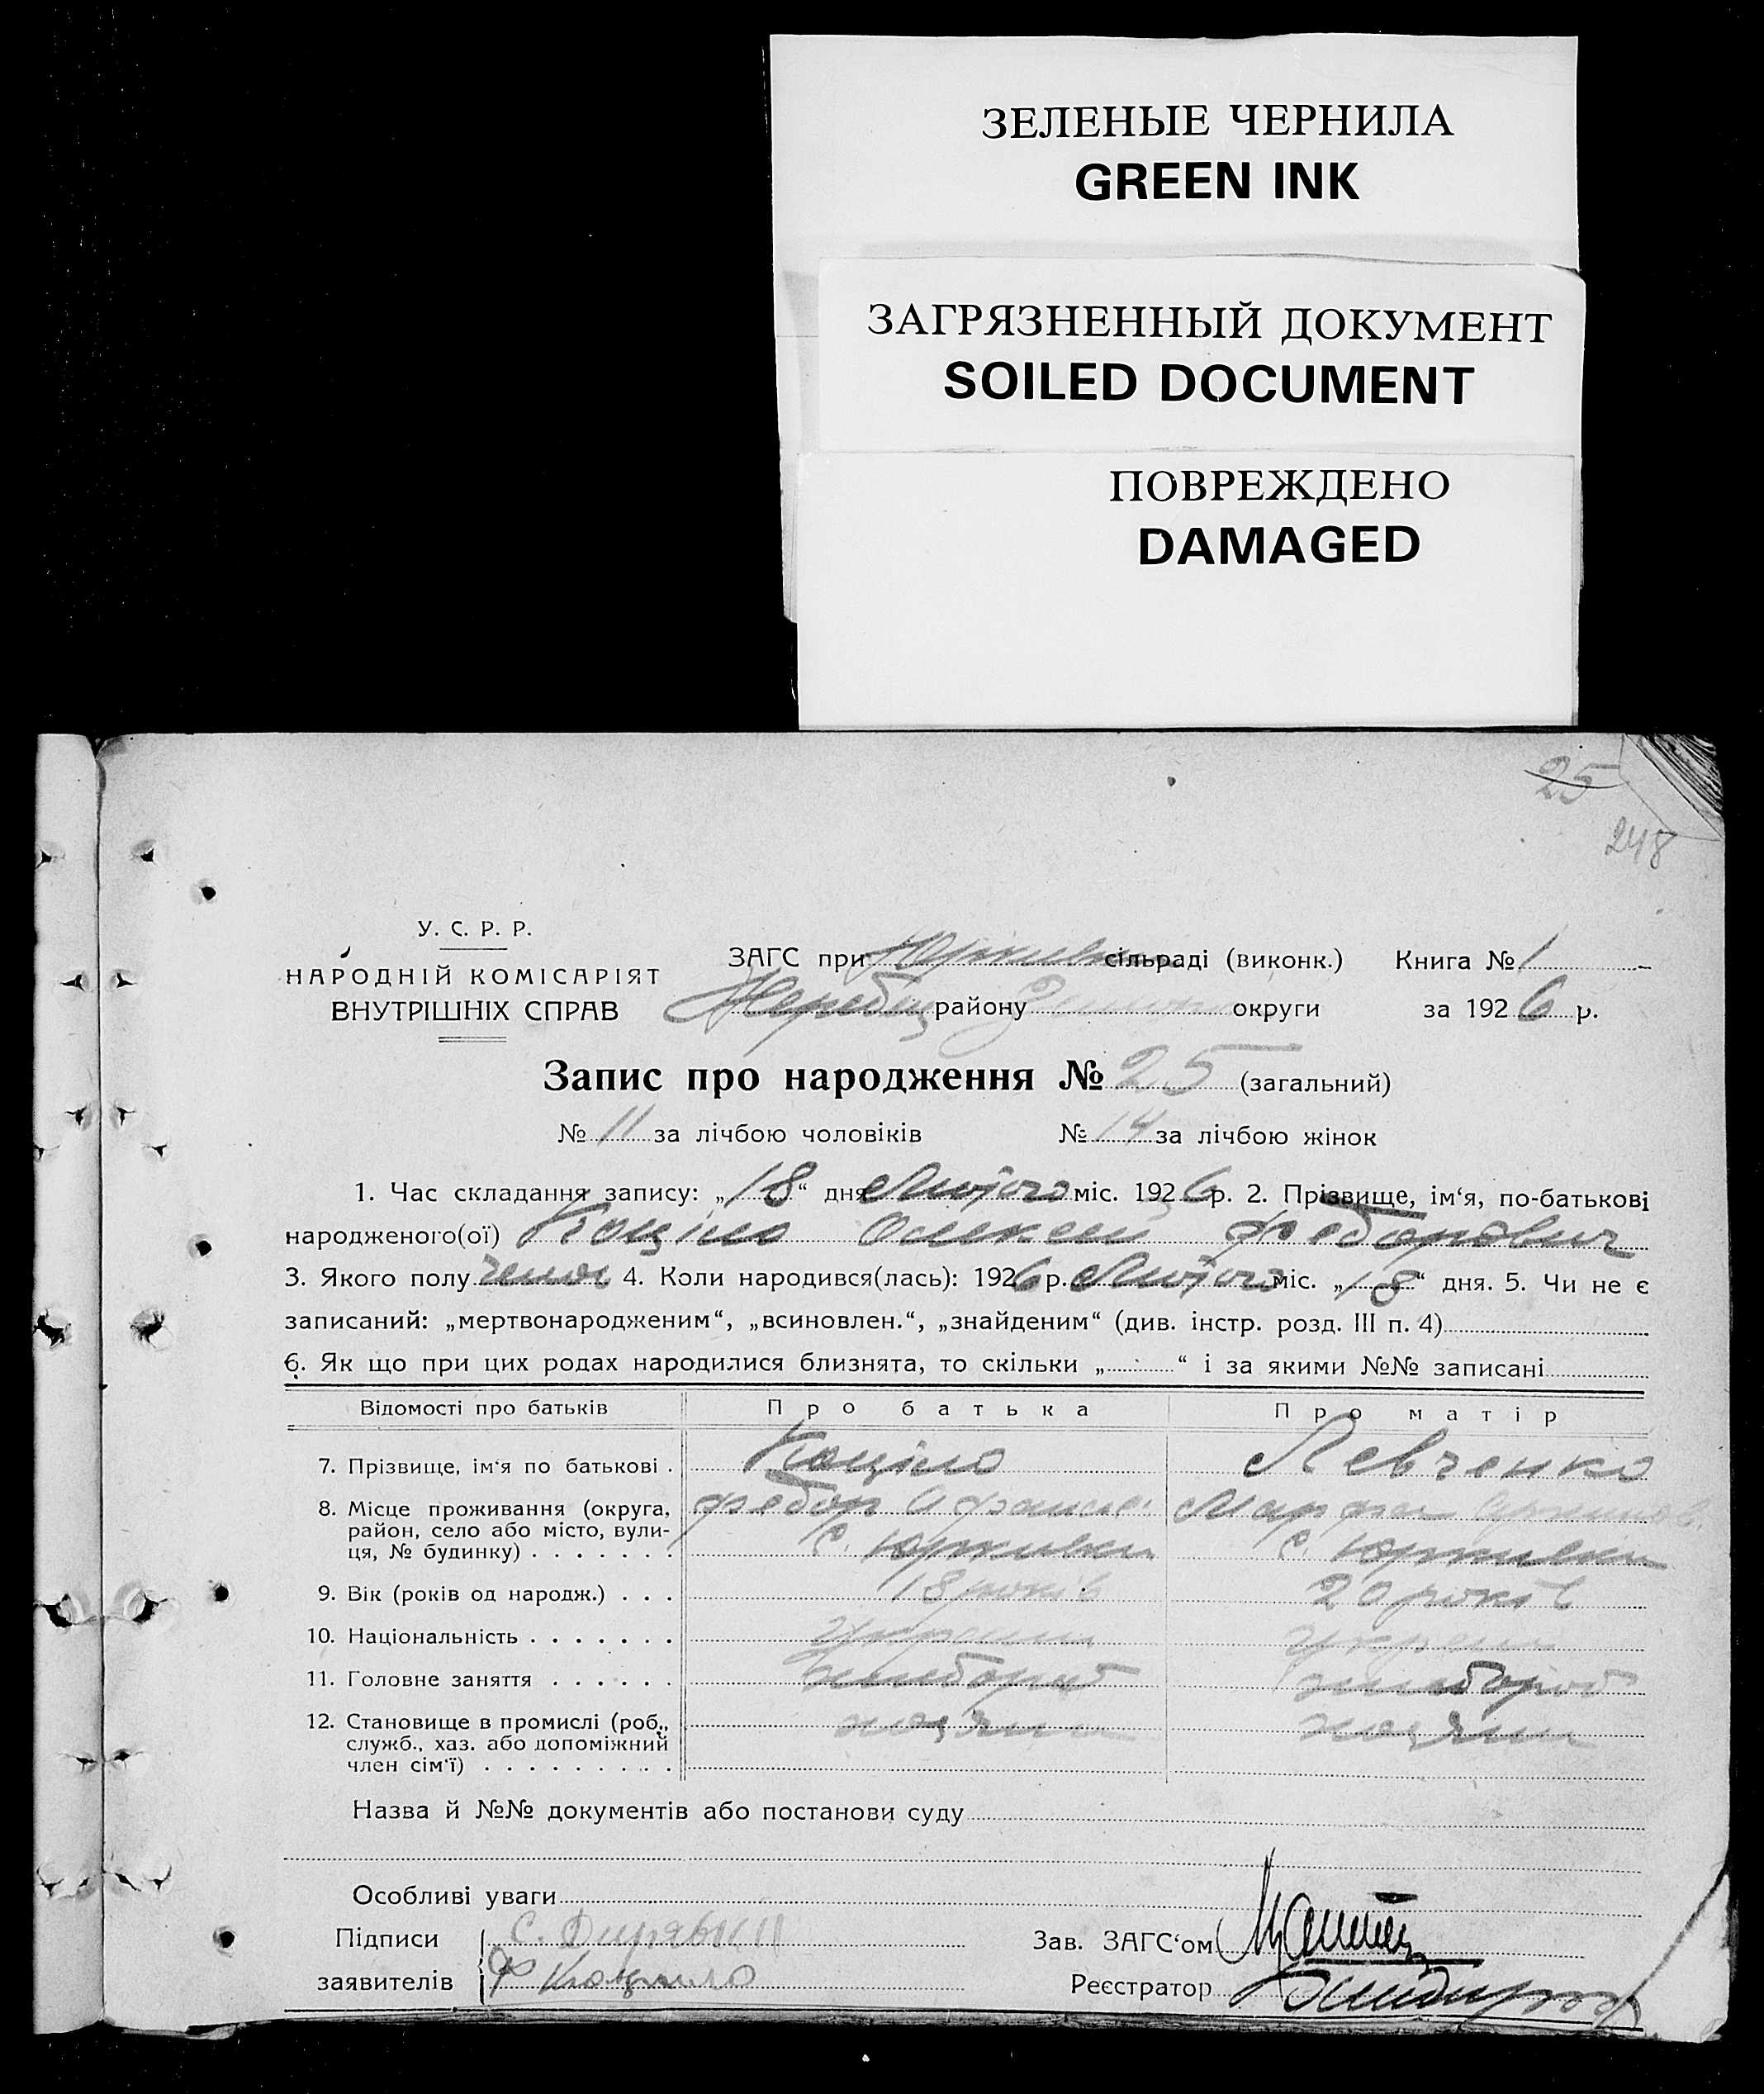 ЗЕЛЕНЫЕ ЧЕРНИЛА
GREEN INK
ЗАГРЯЗНЕННЫЙ ДОКУМЕНТ
SOILED DOCUMENT
ПОВРЕЖДЕНО
DAMAGED
25
248
У. С. Р. Р.
НАРОДНІЙ КОМІСАРІЯТ
ВНУТРІШНІХ СПРАВ
ЗАГС при сільраді (виконк.) Книга № 1
району округи за 1926 р.
Запис про народження № 25 (загальний)
№ 11 за лічбою чоловіків № 14 за лічбою жінок
1. Час складання запису: „18“ дня Лютого міс. 1926 р. 2. Прізвище, ім‘я, по-батькові
народженого(ої) Коціло Олексій Федорович
3. Якого полу чолов 4. Коли народився(лась): 1926 р. Лютого міс. „18“ дня. 5. Чи не є
записаний: „мертвонародженим“, „всиновлен.“, „знайденим“ (див. інстр. розд. III п. 4)
6. Як що при цих родах народилися близнята, то скільки „ “ і за якими №№ записані
Відомості про батьків Про батька Про матір
7. Прізвище, ім‘я по батькові . Коціло Левченко
8. Місце проживання (округа, Федор Афанас Марфа
район, село або місто, вули- с. Юрківки с. Юрківки
ця, № будинку) . . . . . . .
9. Вік (років од народж.) . . . 18 років 20 років
10. Національність . . . . . . . україн україн
11. Головне заняття . . . . . . хлібороб хлібороб
12. Становище в промислі (роб.,
служб., хаз. або допоміжний
член сім‘ї) . . . . . . . . .
Назва й №№ документів або постанови суду
Особливі уваги
Підписи С.
заявителів Ф Коціло
Зав. ЗАГС‘ом
Реєстратор